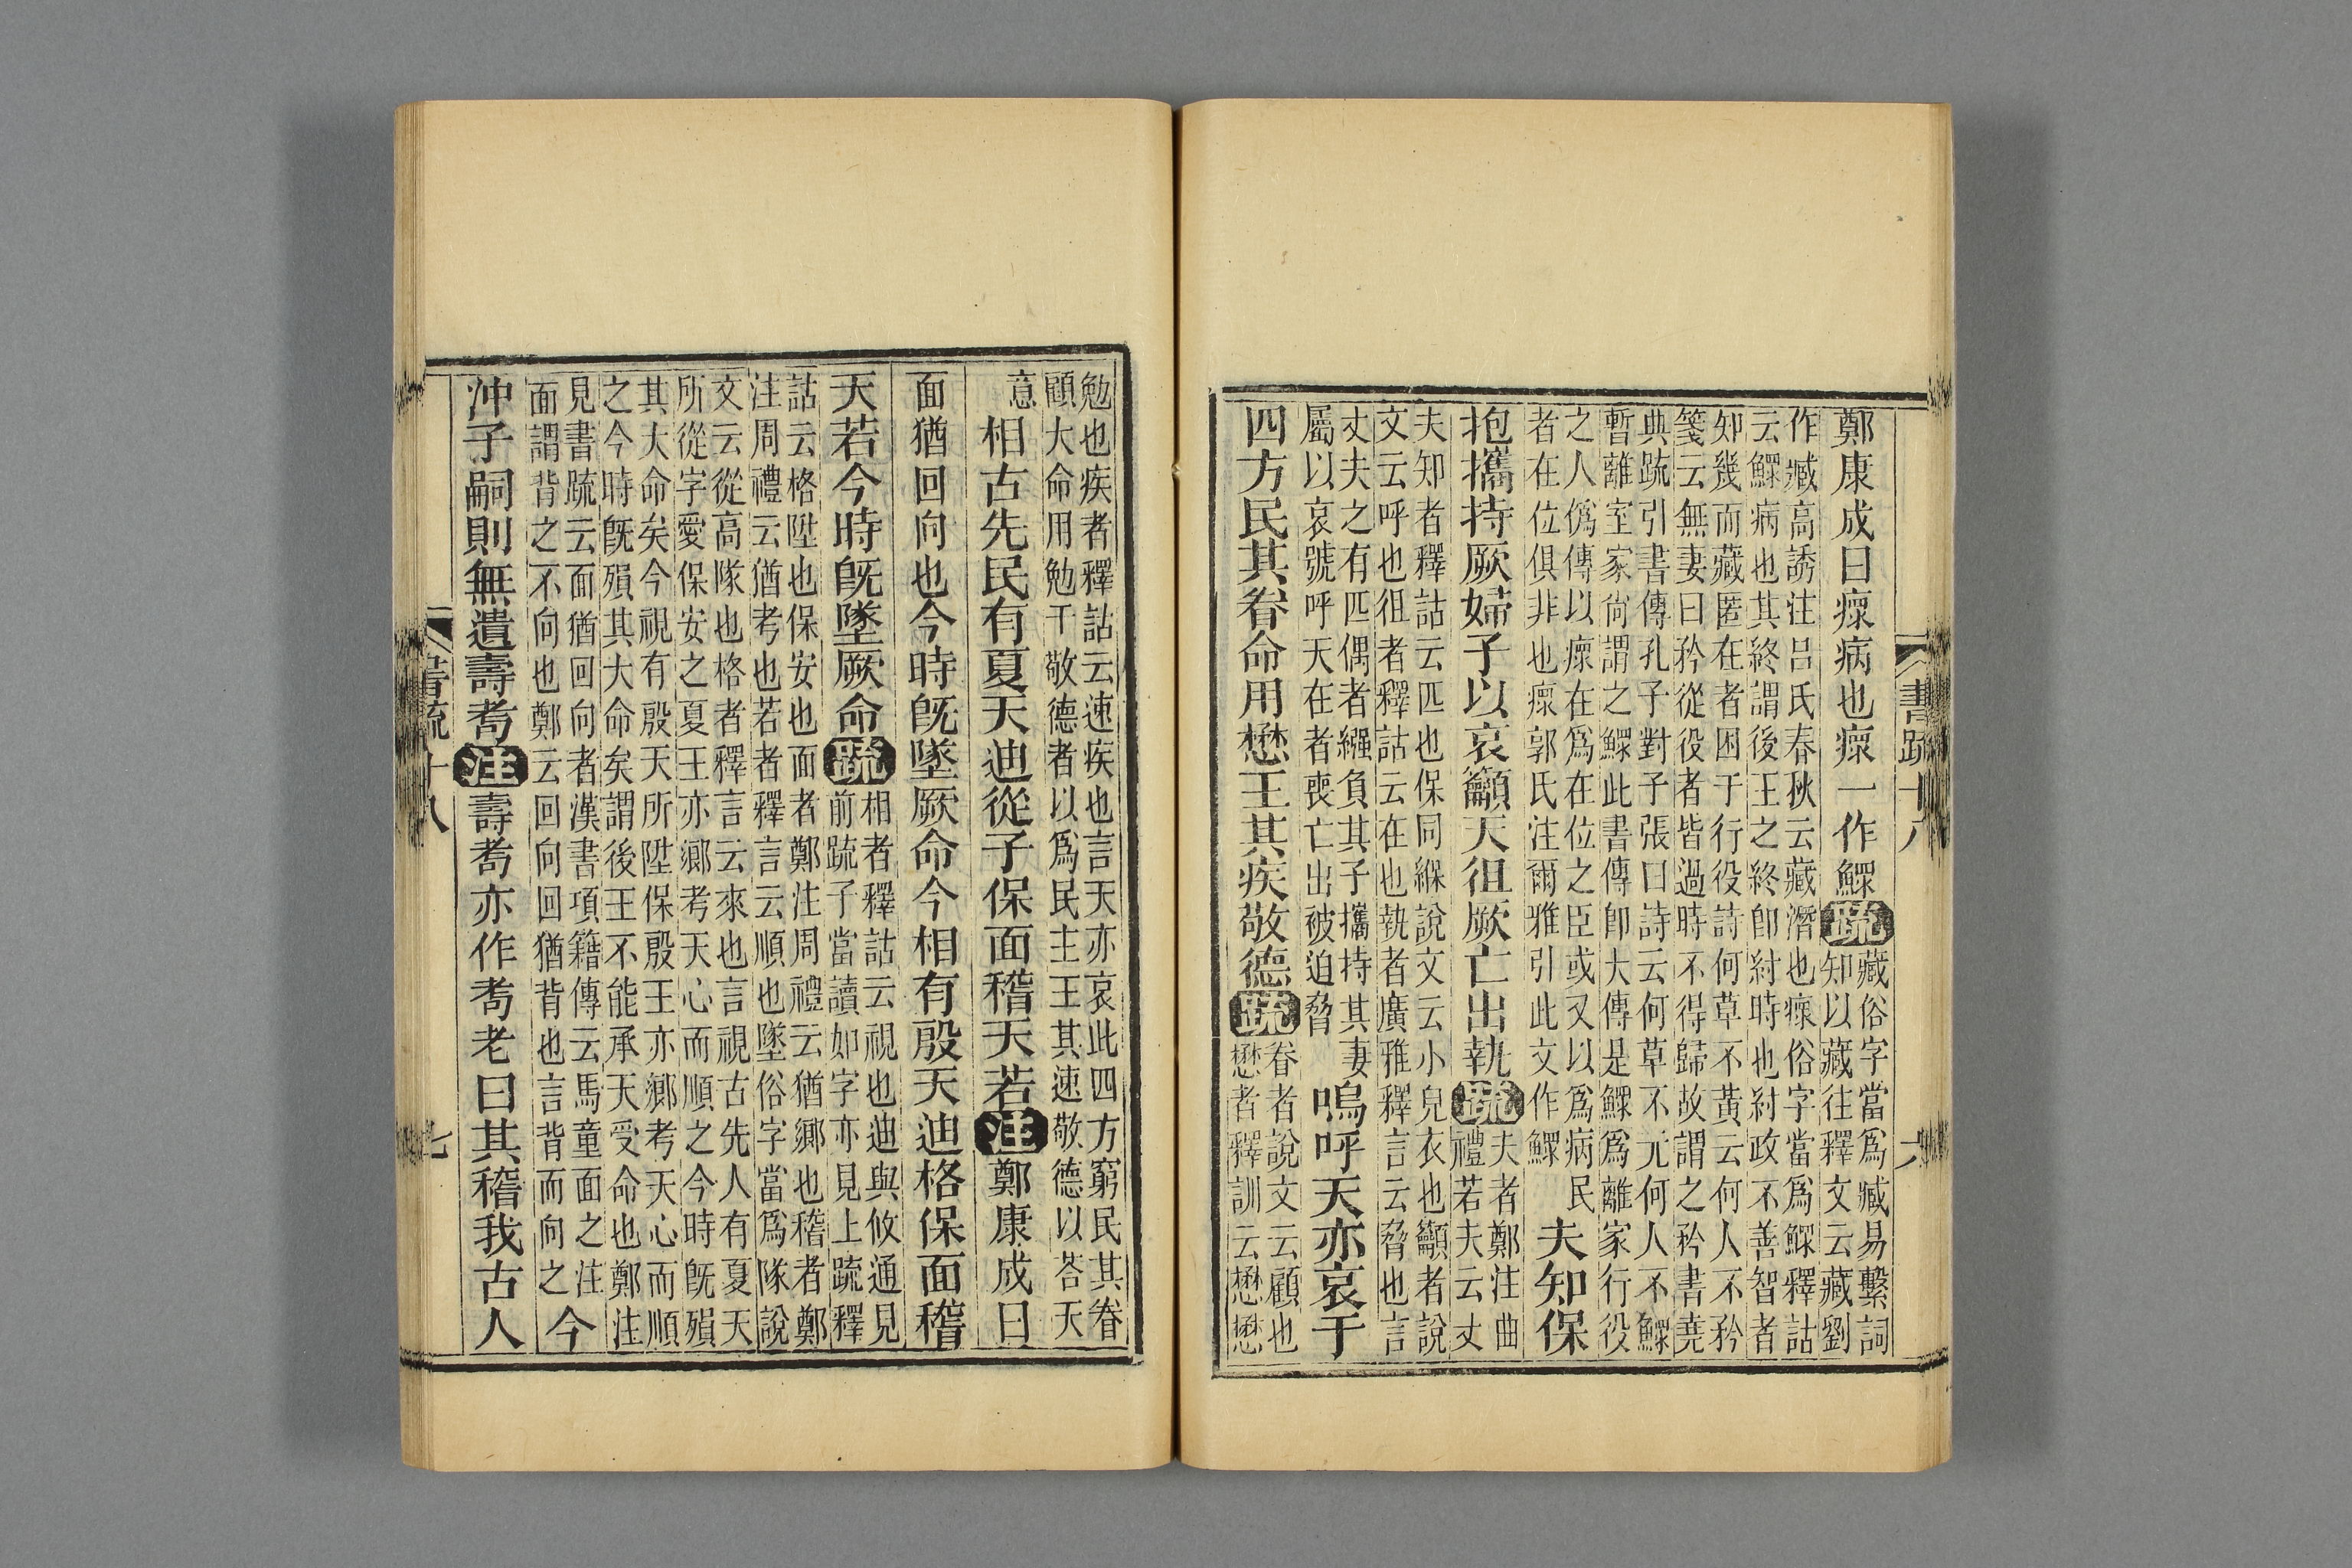 書疏十八 六
鄭康成曰瘝病也瘝一作鰥疏藏俗字當爲臧易繫詞
知以藏往釋文云藏劉
作臧高誘注呂氏春秋云藏潛也瘝俗字當爲鰥釋詁
云鰥病也其終謂後王之終卽紂時也紂政不善智者
知幾而藏匿在者困于行役詩何草不黃云何人不矜
箋云無妻曰矜從役者皆過時不得歸故謂之矜書堯
典疏引書傳孔子對子張曰詩云何草不元何人不鰥
暫離室家尙謂之鰥此書傳卽大傳是鰥爲離家行役
之人僞傳以瘝在爲在位之臣或又以爲病民
者在位俱非也瘝郭氏注爾雅引此文作鰥
夫知保
抱攜持厥婦子以哀籲天徂厥亡出執疏夫者鄭注曲
禮若夫云丈
夫知者釋詁云匹也保同緥說文云小兒衣也籲者說
文云呼也徂者釋詁云在也執者廣雅釋言云脅也言
丈夫之有匹偶者繦負其子攜持其妻
屬以哀號呼天在者喪亡出被迫脅
嗚呼天亦哀于
四方民其眷命用懋王其疾敬德疏眷者說文云顧也
懋者釋訓云懋懋
勉也疾者釋詁云速疾也言天亦哀此四方窮民其眷
顧大命用勉于敬德者以爲民主王其速敬德以荅天
意
相古先民有夏天迪從子保面稽天若注鄭康成曰
面猶回向也今時旣墜厥命今相有殷天迪格保面稽
天若今時旣墜厥命疏相者釋詁云視也迪與攸通見
前疏子當讀如字亦見上疏釋
詁云格陞也保安也面者鄭注周禮云猶鄕也稽者鄭
注周禮云猶考也若者釋言云順也墜俗字當爲隊說
文云從高隊也格者釋言云來也言視古先人有夏天
所從字愛保安之夏王亦鄕考天心而順之今時旣殞
其大命矣今視有殷天所陞保殷王亦鄕考天心而順
之今時旣殞其大命矣謂後王不能承天受命也鄭注
見書疏云面猶回向者漢書項籍傳云馬童面之注
面謂背之不向也鄭云回向回猶背也言背而向之
今
沖子嗣則無遺壽耇注壽耇亦作耇老曰其稽我古人
書疏十八 七